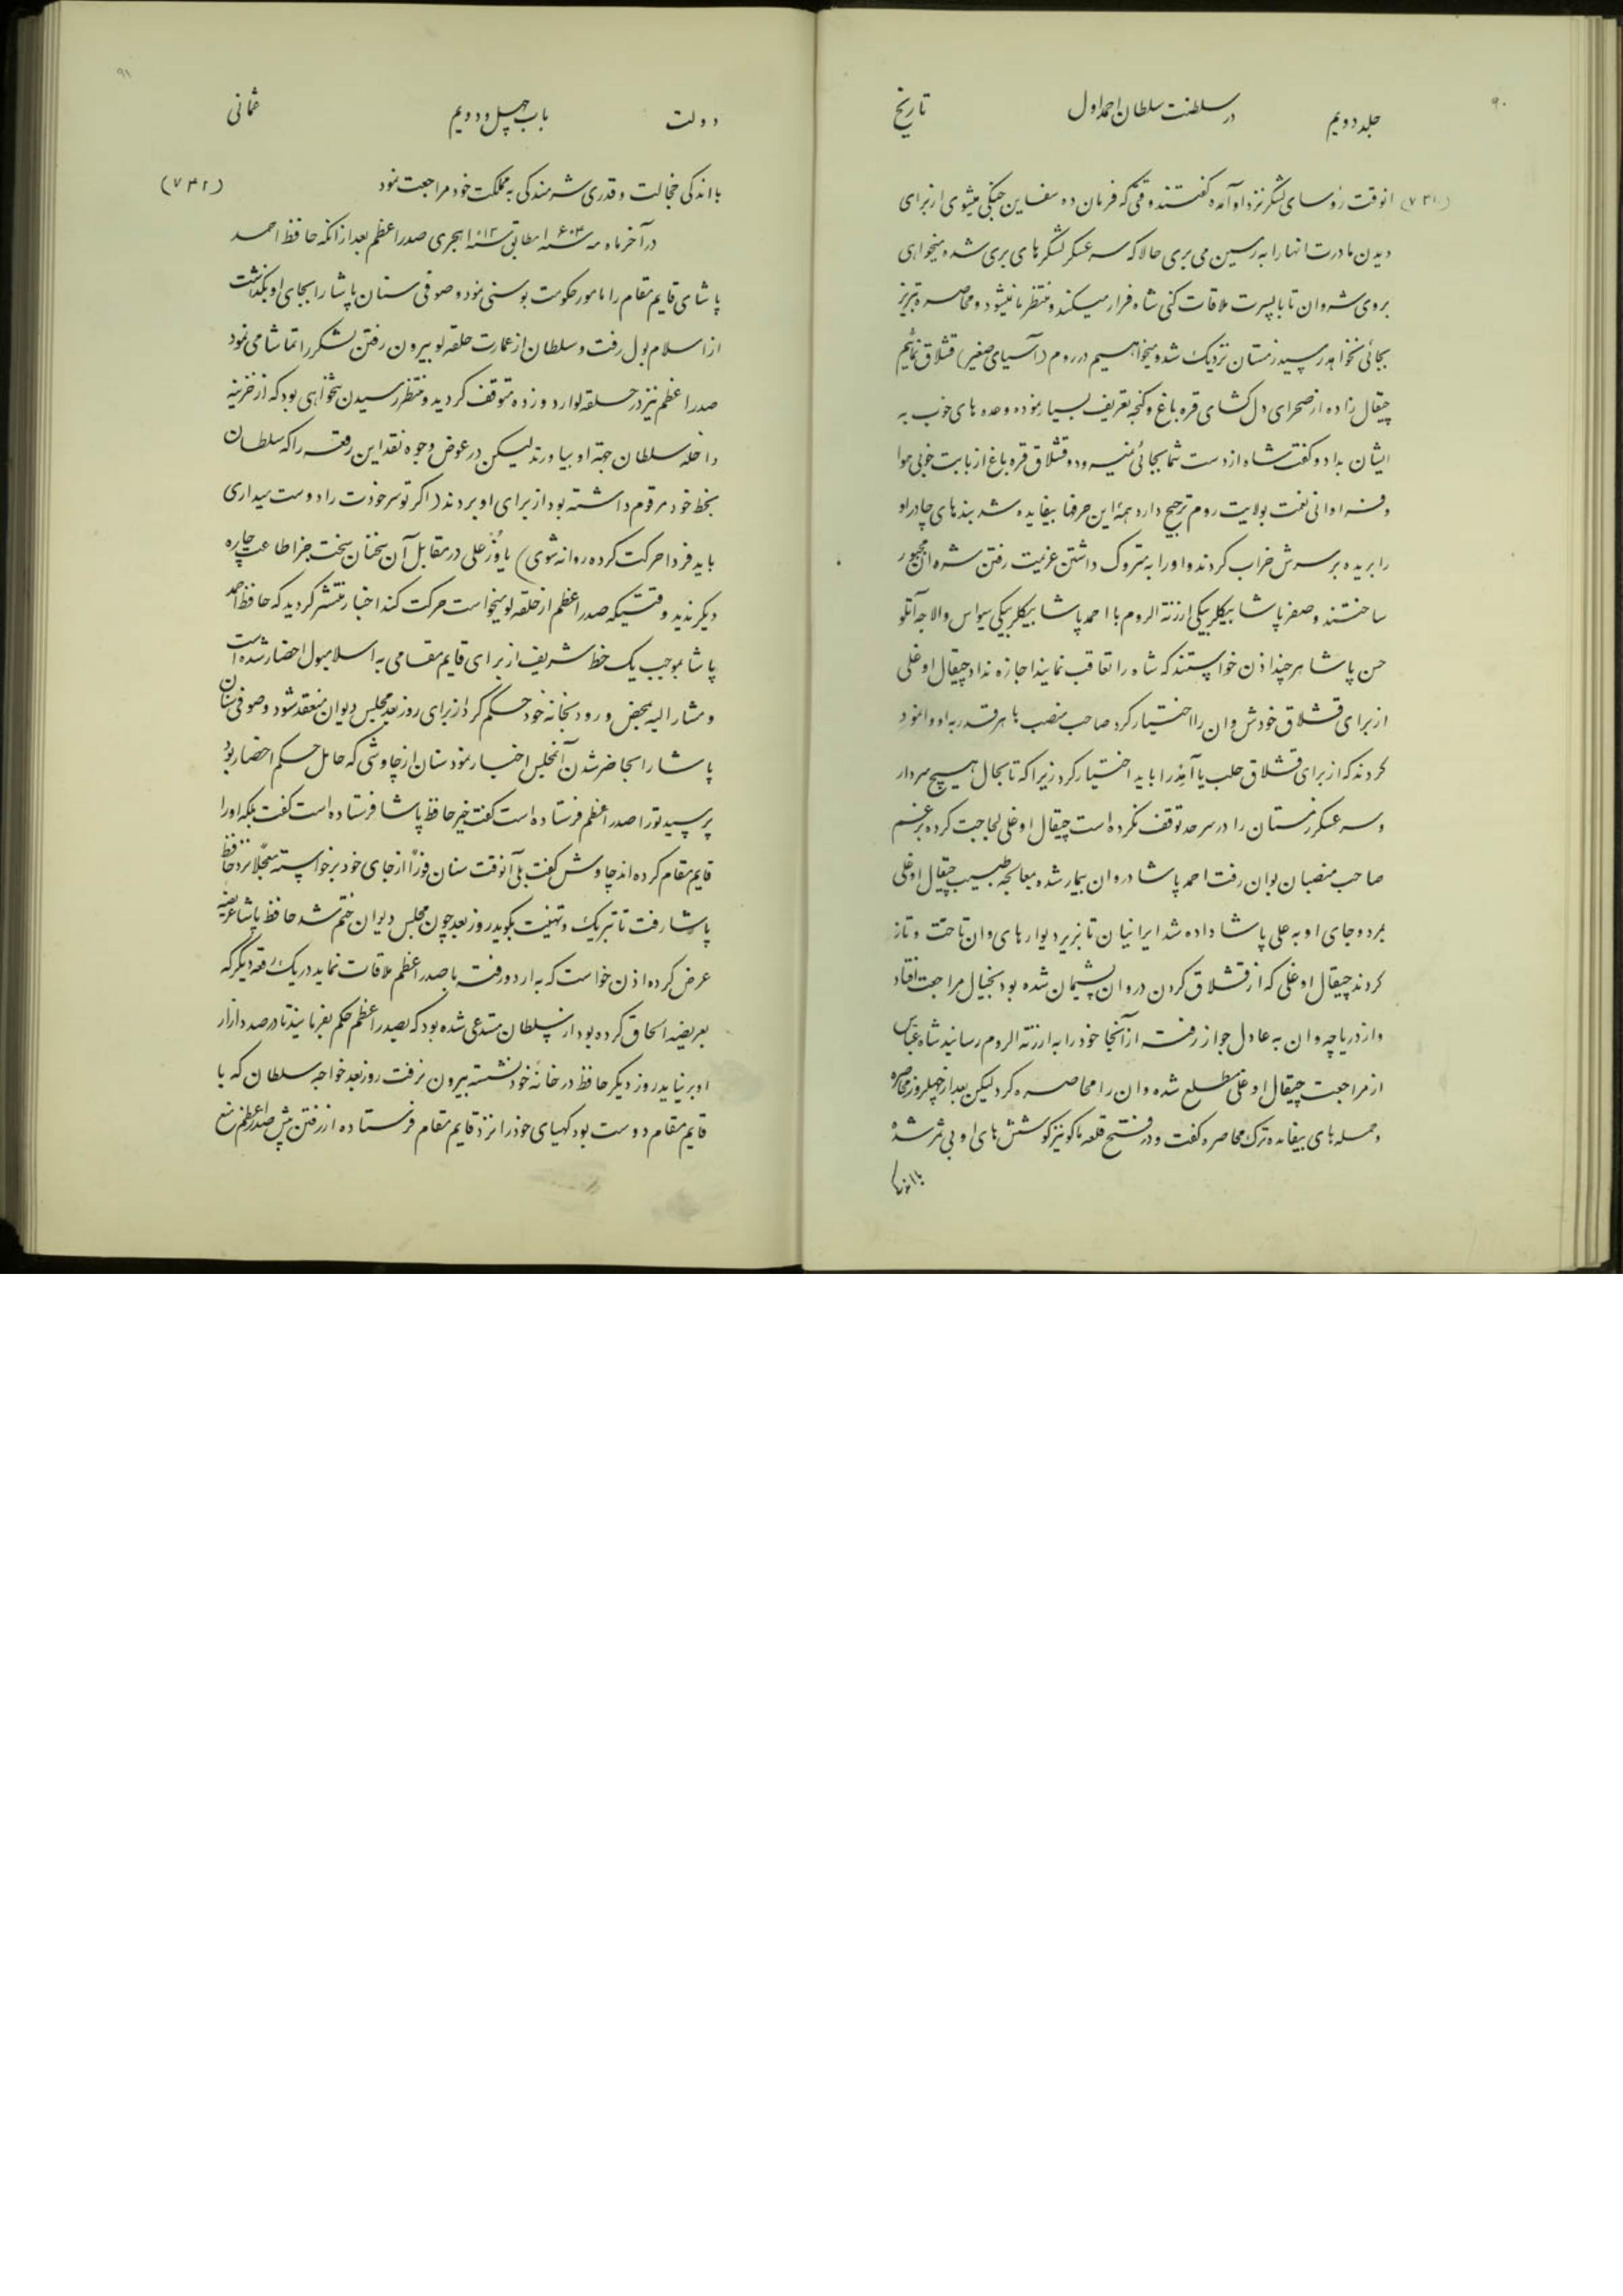 ۹۰
جلد دویم در سلطنت سلطان احمد اول تاریخ
(۷۴۱) انوقت رؤسای لشکر نزد او آمده گفتند وقتی که فرمان ده سفاین جنگی میشوی از برای
دیدن مادرت انها را به رسین می بری حالا که سر عسکر لشگرهای بری شده میخواهی
بروی شروان تا با پسرت ملاقات کنی شاه فرار میکند و منتظر ما نمیشود و محاصره تبریز
بجائی نخواهد رسید زمستان نزدیک شد و میخواهیم در روم (آسیای صغیر) قشلاق نمائیم
چیقال زاده از صحرای دل کشای قره باغ و گنجه تعریف بسیار نموده وعده های خوب به
ایشان بداد و گفت شاه از دست شما بجائی نمیرود و قشلاق قره باغ از بابت خوبی هوا
و فراوانی نعمت بولایت روم ترجیح دارد همۀ این حرفها بیفایده شد بندهای چادر او
را بریده بر سرش خراب کردند و او را به متروک داشتن عزیمت رفتن شروان مجبور
ساختند و صفر پاشا بیکلربیکی ارزنة الروم با احمد پاشا بیکلربیکی سیواس والاجه آتلو
حسن پاشا هر چند اذن خواستند که شاه را تعاقب نمایند اجازه نداد چیقال اوغلی
از برای قشلاق خودش وان را اختیار کرد صاحب منصب ها هر قدر به او وانمود
کردند که از برای قشلاق حلب یا آمد را باید اختیار کرد زیرا که تا بحال هیچ سردار
و سر عسکر زمستان را در سرحد توقف نکرده است چیقال اوغلی لجاجت کرده بر غم
صاحب منصبان بوان رفت احمد پاشا در وان بیمار شده بمعالجه طبیب چیقال اوغلی
بمرد و جای او به علی پاشا داده شد ایرانیان تا بزیر دیوارهای وان تاخت و تاز
کردند چیقال اوغلی که از قشلاق کردن در وان پشیمان شده بود بخیال مراجعت افتاد
و از دریاچه وان به عادل جواز رفت از آنجا خود را به ارزنة الروم رسانید شاه عباس
از مراجعت چیقال اوغلی مطلع شده وان را محاصره کرد لیکن بعد از چهلروز محاصره
و حمله های بیفایده ترک محاصره گفت و در فتح قلعه ماکو نیز کوشش های او بی ثمر شده
با اندکی
۹۱
دولت باب چهل و دویم عثمانی
با اندکی خجالت و قدری شرمندگی به مملکت خود مراجعت نمود (۷۴۲)
در آخر ماه مه سنه ۱۶۰۴ مطابق سنه ۱۰۱۳ هجری صدر اعظم بعد از انکه حافظ احمد
پاشای قایم مقام را مامور حکومت بوسنی نمود و صوفی سنان پاشا را بجای او بگذاشت
از اسلامبول رفت و سلطان از عمارت حلقه لو بیرون رفتن لشکر را تماشا می نمود
صدر اعظم نیز در حلقه لو اردو زده متوقف گردید و منتظر رسیدن تنخواهی بود که از خزینه
داخله سلطان جهة او بیاورند لیکن در عوض وجوه نقد این رقعه را که سلطان
بخط خود مرقوم داشته بود از برای او بردند (اگر تو سر خودت را دوست میداری
باید فردا حرکت کرده روانه شوی) یاوز علی در مقابل آن سخنان سخت جز اطاعت چاره
دیگر ندید وقتیکه صدر اعظم از حلقه لو میخواست حرکت کند اخبار منتشر گردید که حافظ احمد
پاشا بموجب یک خط شریف از برای قایم مقامی به اسلامبول احضار شده است
و مشار الیه بمحض ورود بخانه خود حکم کرد از برای روز بعد مجلس دیوان منعقد شود و صوفی سنان
پاشا را بجا حضر شدن آنمجلس اخبار نمود سنان از چاوشی که حامل حکم احضار بود
پرسید تو را صدر اعظم فرستاده است گفت خیر حافظ پاشا فرستاده است گفت بلکه او را
قایم مقام کرده اند چاوش گفت بلی آنوقت سنان فوراً از جای خود برخواسته معجّلاً نزد حافظ
پاشا رفت تا تبریک و تهنیت بگوید روز بعد چون مجلس دیوان ختم شد حافظ پاشا عریضه
عرض کرده اذن خواست که به اردو رفته با صدر اعظم ملاقات نماید در یک رقعه دیگر که
بعریضه الحاق کرده بود از سلطان مستدعی شده بود که بصدر اعظم حکم بفرمایند تا در صدد ازار
او بر نیاید روز دیگر حافظ در خانۀ خود نشسته بیرون نرفت روز بعد خواجه سلطان که با
قایم مقام دوست بود کهیای خود را نزد قایم مقام فرستاده از رفتن پیش صدر اعظم منع